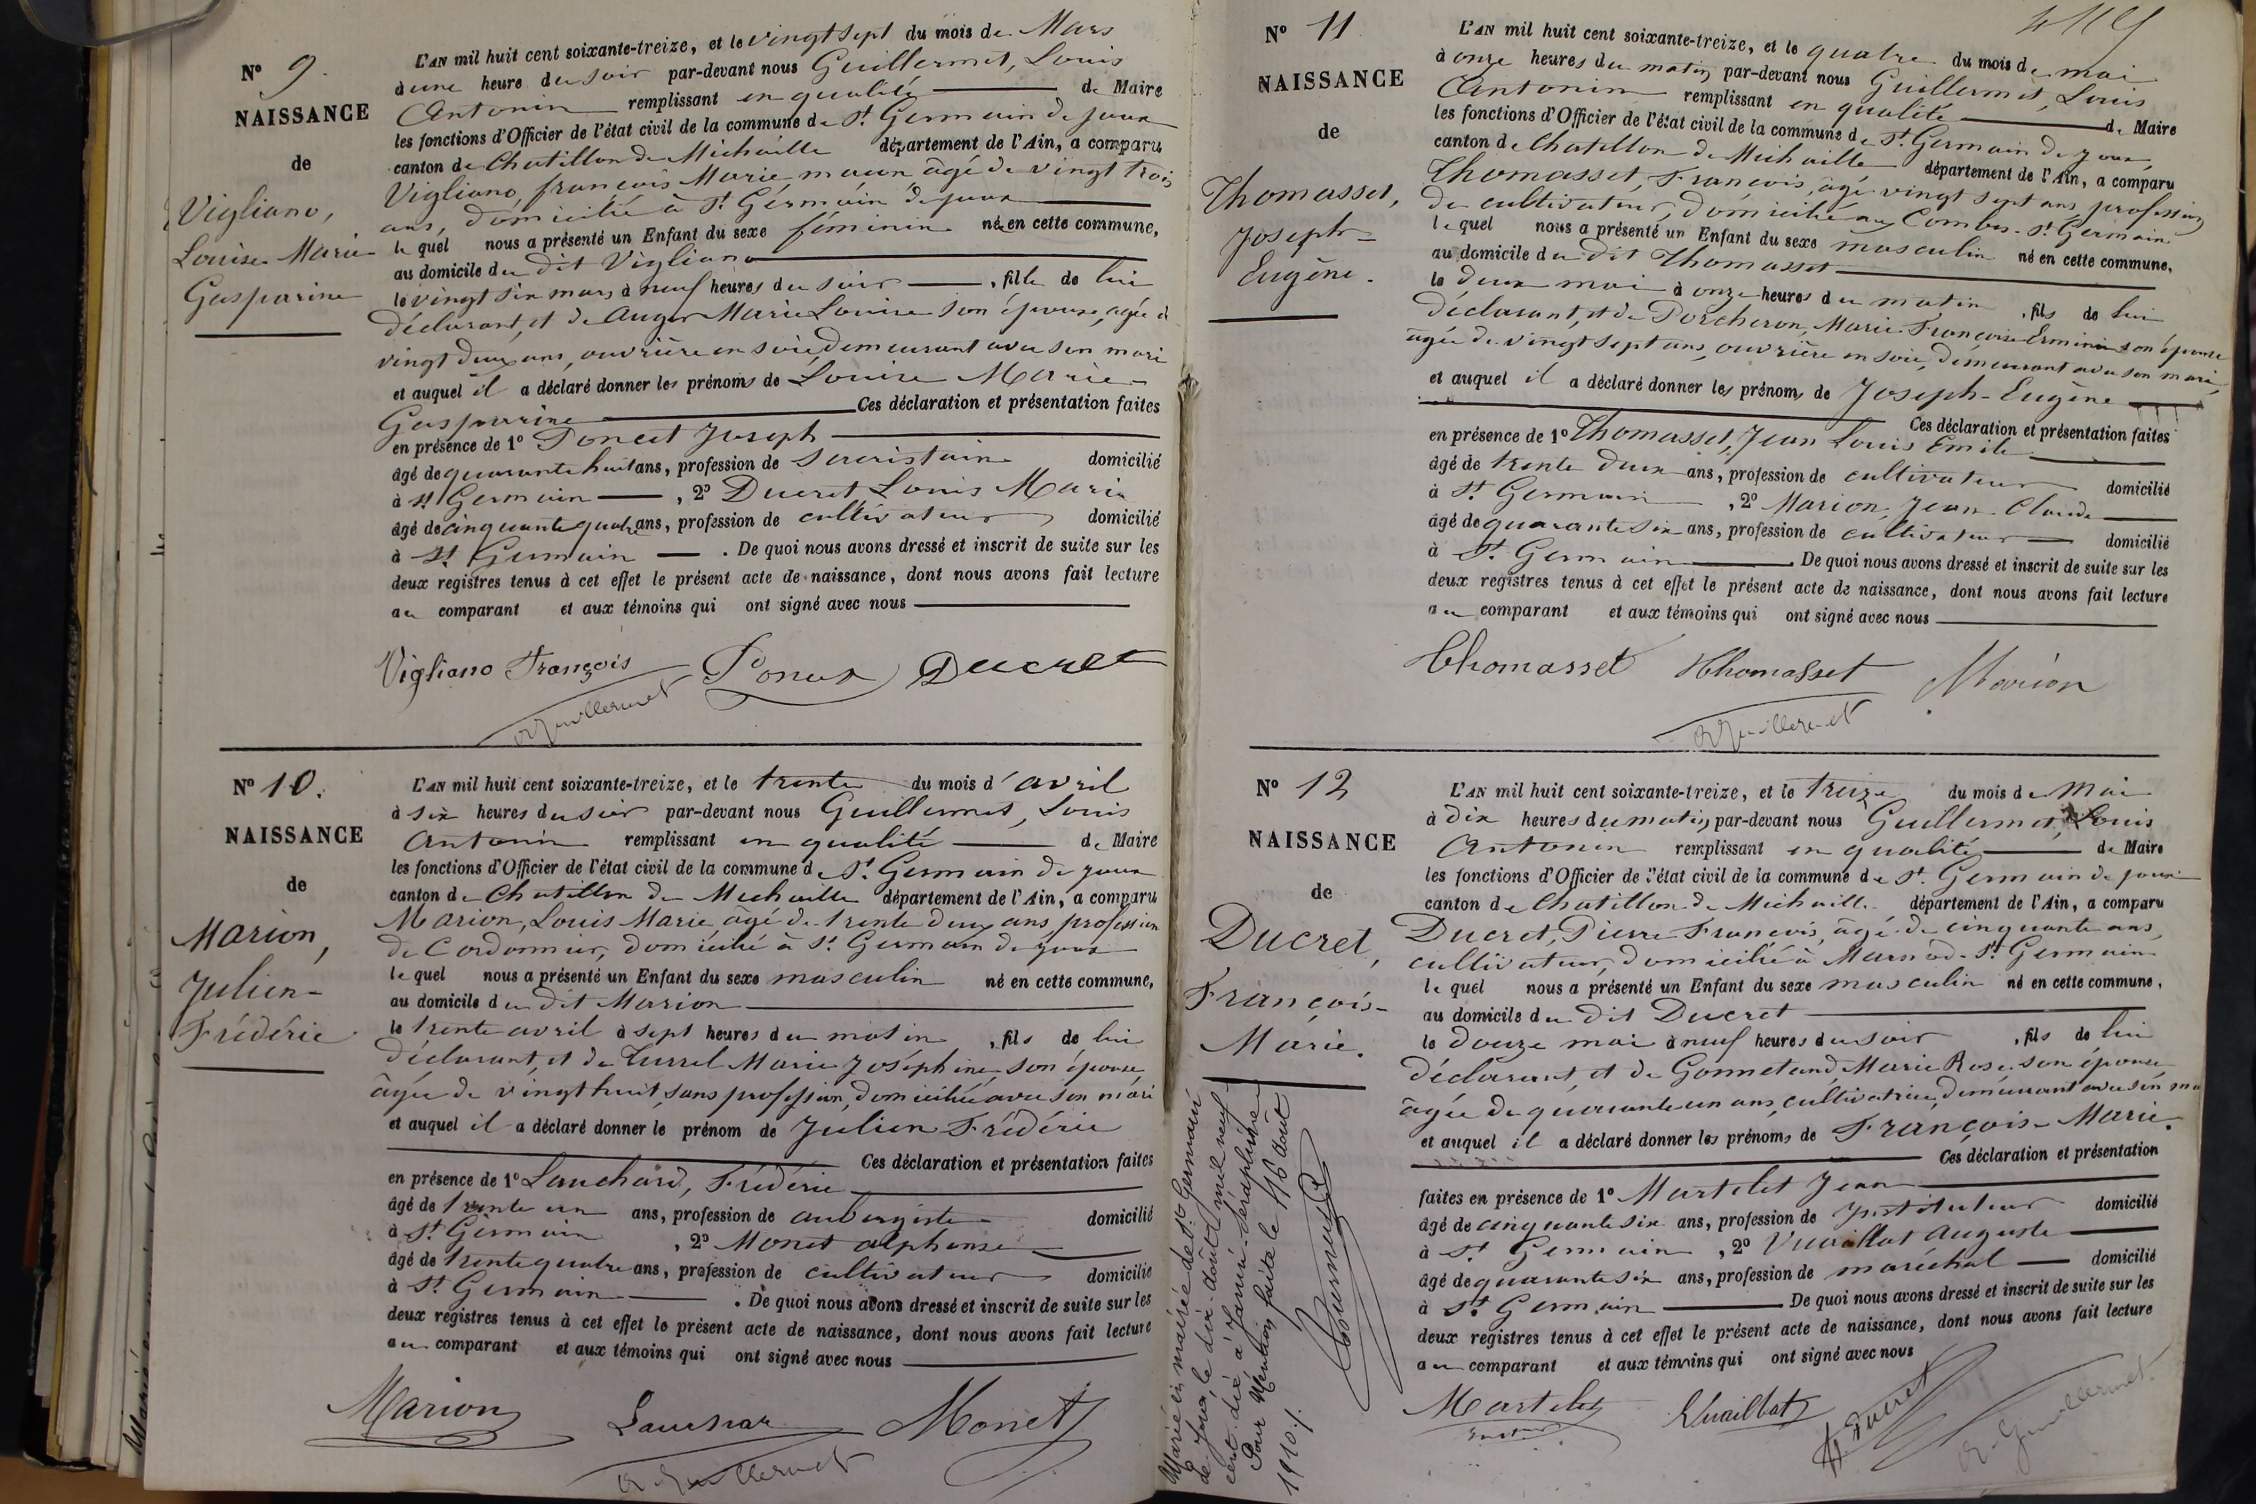 N° 9.
NAISSANCE
de
Vigliano,
Louise Marie
Gasparine
L'AN mil huit cent soixante-treize, et le vingt sept du mois de Mars
à une heure du soir par-devant nous Guillermet, Louis
Antonin remplissant en qualité de Maire
les fonctions d'Officier de l'état civil de la commune de St Germain de Joux
canton de Chatillon de Michaille département de l'Ain, a comparu
Vigliano, françois Marie, maçon âgé de vingt trois
ans, domicilié à St Germain de joux
lequel nous a présenté un Enfant du sexe féminin née en cette commune,
au domicile du dit Vigliano
le vingt six mars à neuf heures du soir, fille de lui
déclarant, et de Auger Marie Louise son épouse, agée de
vingt deux ans, ouvrière en soie, demeurant avec son mari
et auquel il a déclaré donner les prénoms de Louise Marie-
Gasparine Ces déclaration et présentation faites
en présence de 1° Poncet Joseph
âgé de quarante huit ans, profession de sacristain domicilié
à St Germain, 2° Ducret, Louis Marie
âgé de cinquante quatre ans, profession de cultivateur domicilié
à St Germain. De quoi nous avons dressé et inscrit de suite sur les
deux registres tenus à cet effet le présent acte de naissance, dont nous avons fait lecture
au comparant et aux témoins qui ont signé avec nous
Vigliano François Poncet Ducret
A Guillermet
N° 10.
NAISSANCE
de
Marion,
Julien-
Frédéric
L'AN mil huit cent soixante-treize, et le trente du mois d'avril
à six heures du soir par-devant nous Guillermet, Louis
Antonin remplissant en qualité de Maire
les fonctions d'Officier de l'état civil de la commune de St Germain de joux
canton de Chatillon de Michaille département de l'Ain, a comparu
Marion, Louis Marie, âgé de trente deux ans profession
de Cordonnier, domicilié à St Germain de joux
lequel nous a présenté un Enfant du sexe masculin né en cette commune,
au domicile du dit Marion
le trente avril à sept heures du matin, fils de lui
déclarant, et de Turrel Marie Joséphine, son épouse,
âgée de vingt huit, sans profession, domiciliée avec son mari
et auquel il a déclaré donner le prénom de Julien Frédéric
Ces déclaration et présentation faites
en présence de 1° Lauchard, Frédéric
âgé de trente un ans, profession de aubergiste domicilié
à St Germain, 2° Monet alphonse
âgé de trente quatre ans, profession de cultivateur domicilié
à St Germain. De quoi nous avons dressé et inscrit de suite sur les
deux registres tenus à cet effet le présent acte de naissance, dont nous avons fait lecture
au comparant et aux témoins qui ont signé avec nous
Marion Monet
A Guillermet
N° 11
NAISSANCE
de
Thomasset,
Joseph-
Eugène.
L'AN mil huit cent soixante-treize, et le quatre du mois de mai
à onze heures du matin, par-devant nous Guillermet, Louis
Antonin remplissant en qualité de Maire
les fonctions d'Officier de l'état civil de la commune de St Germain de joux,
canton de Chatillon de Michaille département de l'Ain, a comparu
Thomasset, François, âgé vingt sept ans, profession
de cultivateur, domicilié au Combes-St Germain
lequel nous a présenté un Enfant du sexe masculin né en cette commune,
au domicile du dit Thomasset
le deux mai à onze heures du matin, fils de lui
déclarant, et de Porcheron, Marie Françoise Erminie son épouse
âgée de vingt sept ans, ouvrière en soie, demeurant avec son mari,
et auquel il a déclaré donner les prénoms de Joseph-Eugène
Ces déclaration et présentation faites
en présence de 1° Thomasset, Jean Louis Emile
âgé de trente deux ans, profession de cultivateur domicilié
à St Germain, 2° Marion, Jean Claude
âgé de quarante six ans, profession de cultivateur domicilié
à St Germain. De quoi nous avons dressé et inscrit de suite sur les
deux registres tenus à cet effet le présent acte de naissance, dont nous avons fait lecture
au comparant et aux témoins qui ont signé avec nous
Thomasset Thomasset Marion
A Guillermet
N° 12
NAISSANCE
de
Ducret,
François-
Marie.
Marié en mairie de St Germain
de Joux, le dix août mil neuf
cent dix, à Janin-Séraphine
Pour Mention faite le 16 août
1910./.
L'AN mil huit cent soixante-treize, et le treize du mois de Mai
à dix heures du matin, par-devant nous Guillermet, Louis
Antonin remplissant en qualité de Maire
les fonctions d'Officier de l'état civil de la commune de St Germain de joux
canton de Chatillon de Michaille département de l'Ain, a comparu
Ducret, Pierre François, âgé de cinquante ans,
cultivateur, domicilié à Marnod-St Germain
lequel nous a présenté un Enfant du sexe masculin né en cette commune,
au domicile du dit Ducret
le douze mai à neuf heures du soir, fils de lui
déclarant, et de Gonnetand, Marie Rose, son épouse
âgée de quarante un ans, cultivatrice, demeurant avec son ma
et auquel il a déclaré donner les prénoms de François-Marie.
Ces déclaration et présentation
faites en présence de 1° Martelet Jean
âgé de cinquante six ans, profession de Instituteur domicilié
à St Germain, 2° Vuaillat Auguste
âgé de quarante six ans, profession de maréchal domicilié
à St Germain De quoi nous avons dressé et inscrit de suite sur les
deux registres tenus à cet effet le présent acte de naissance, dont nous avons fait lecture
au comparant et aux témoins qui ont signé avec nous
Martelet Vuaillat Ducret
A. Guillermet